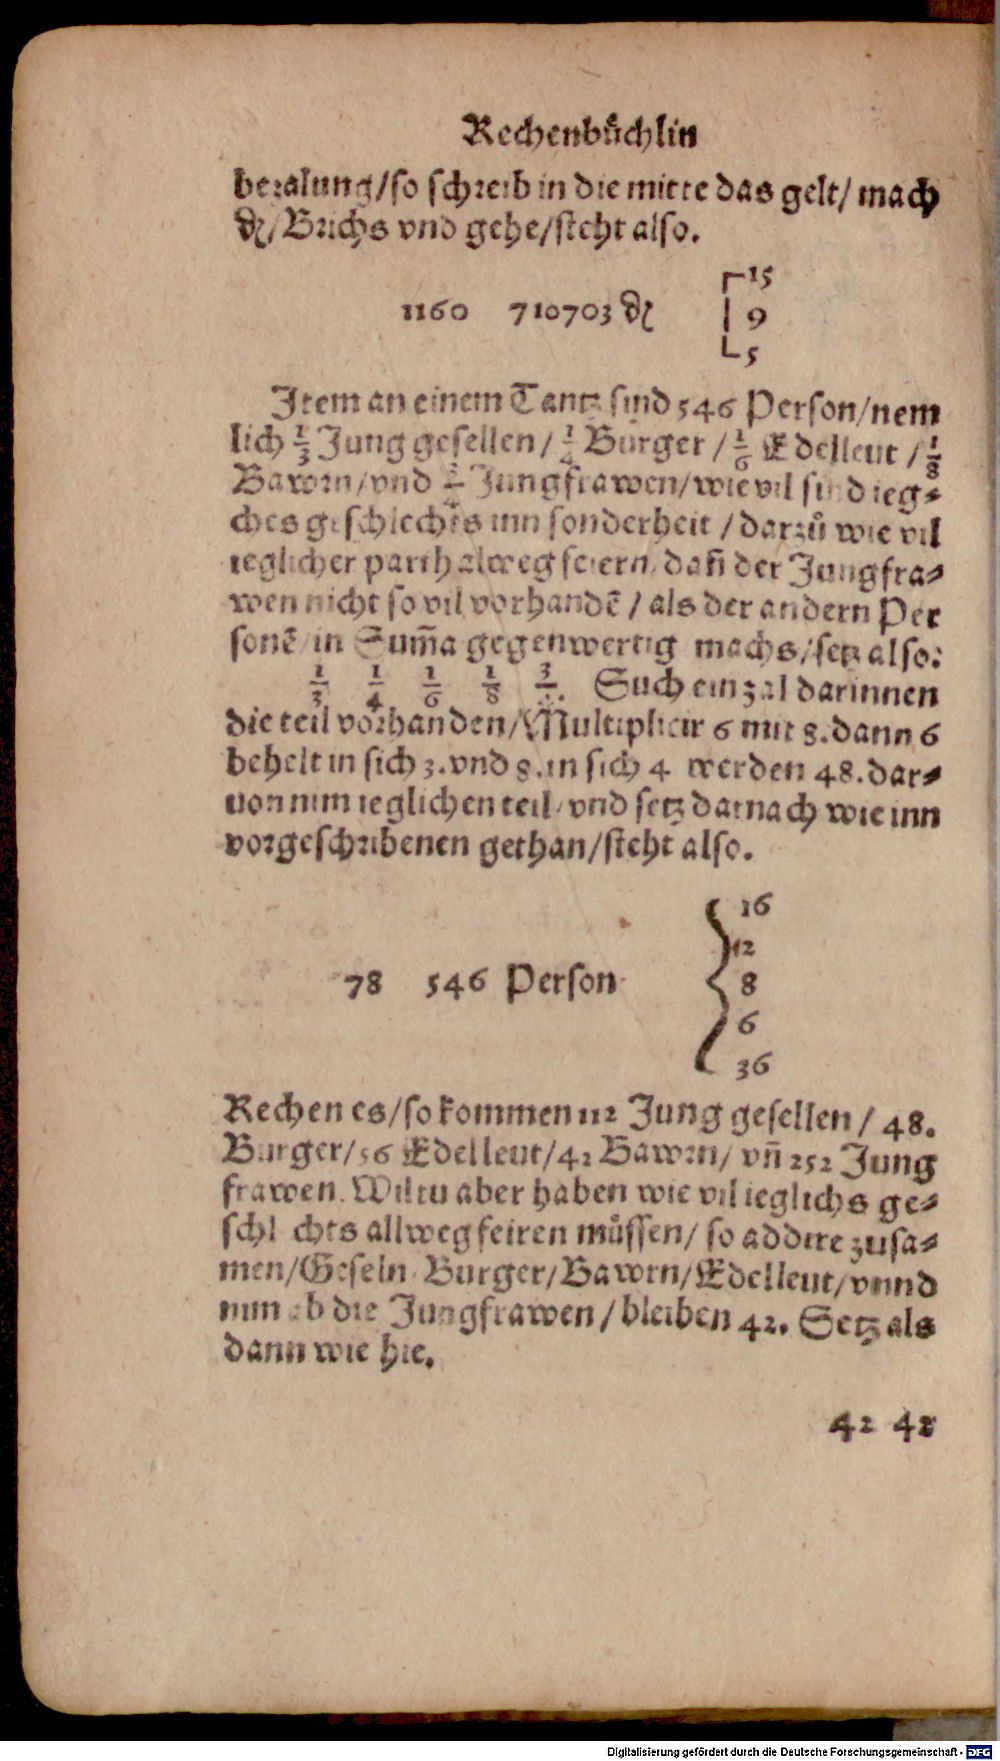 Rechenbüchlin
bezalung/so schreib in die mitte das gelt/ mach
₰/Brichs vnd gehe/steht also.
15
1160 710703 ₰ 9
5
Item an einem Tantz sind 546 Person/nem
lich 1/3 Jung gesellen/ 1/4 Burger/ 1/6 Edelleut/ 1/8
Bawrn/vnd 3/4 Jungfrawen/wie vil sind ieg⸗
ches geschlechts inn sonderheit/darzů wie vil
ieglicher parth alweg feiern/dañ der Jungfra⸗
wen nicht so vil vorhandē/als der andern Per
sonē/in Sum̃a gegenwertig machs/setz also:
1/3 1/4 1/6 1/8 3/4. Such ein zal darinnen
die teil vorhanden/Multiplicir 6 mit 8.dann 6
behelt in sich 3.vnd 8.in sich 4 werden 48.dar⸗
uon nim ieglichen teil/vnd setz darnach wie inn
vorgeschribenen gethan/steht also.
16
12
78 546 Person 8
6
36
Rechen es/so kommen 112 Jung gesellen/ 48.
Burger/56 Edelleut/42 Bawrn/ vñ 252 Jung
frawen. Wiltu aber haben wie vil ieglichs ge⸗
schlechts allweg feiren můssen/ so addire zusa⸗
men/Geseln Burger/Bawrn/Edelleut/vnnd
nim ab die Jungfrawen/bleiben 42. Setz als
dann wie hie.
42 42
Digitalisierung gefördert durch die Deutsche Forschungsgemeinschaft - DFG